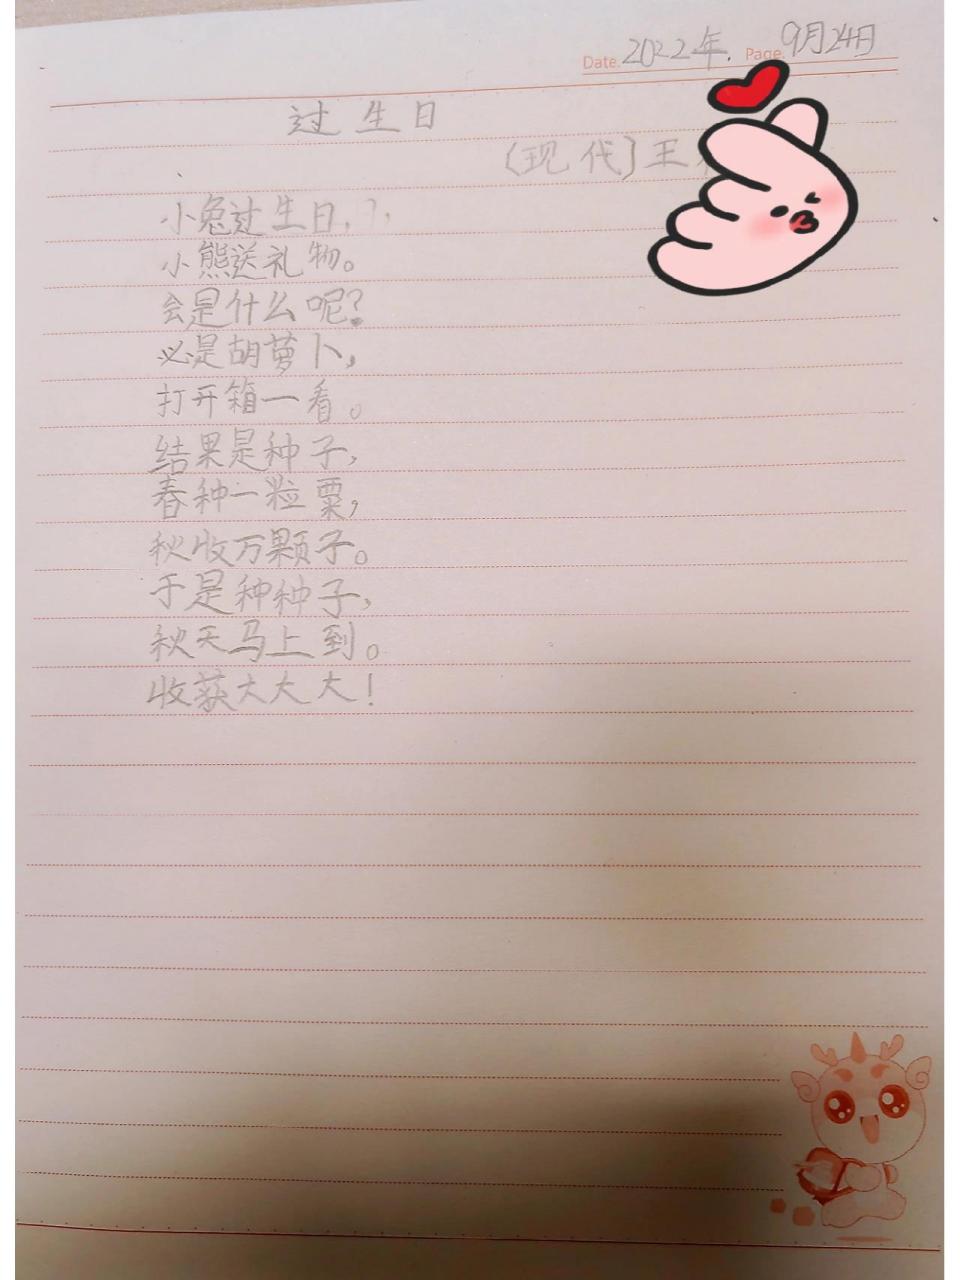 Date. 2022年. Page. 9月24日
过生日
〔现代〕王
小兔过生日,
小熊送礼物。
会是什么呢?
必是胡萝卜,
打开箱一看。
结果是种子,
春种一粒粟,
秋收万颗子。
于是种种子,
秋天马上到。
收获大大大!